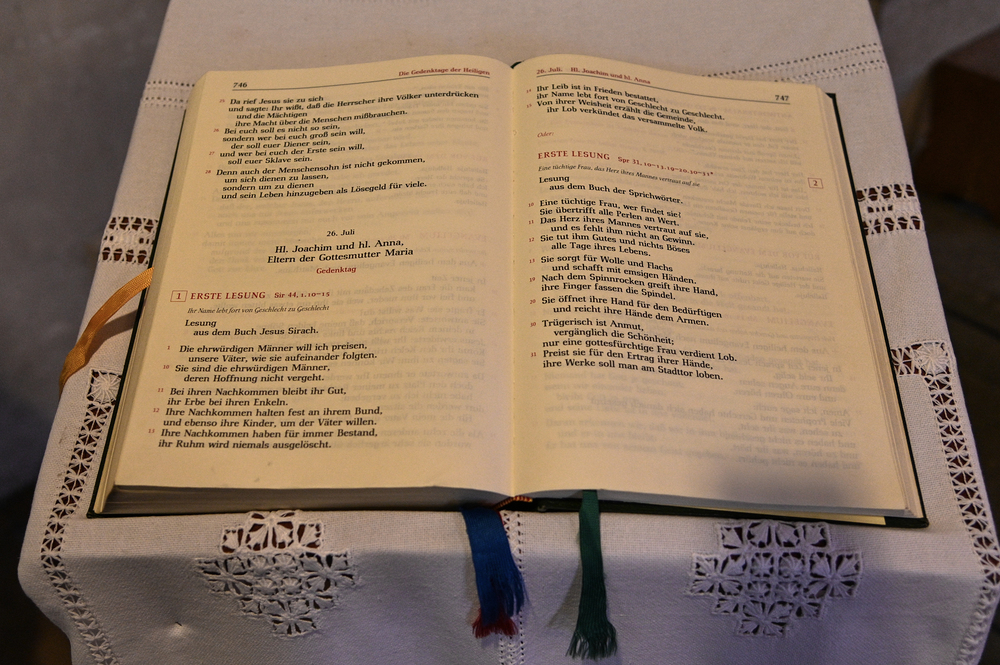 746
Die Gedenktage der Heiligen
25 Da rief Jesus sie zu sich
und sagte: Ihr wißt, daß die Herrscher ihre Völker unterdrücken
und die Mächtigen
ihre Macht über die Menschen mißbrauchen.
26 Bei euch soll es nicht so sein,
sondern wer bei euch groß sein will,
der soll euer Diener sein,
27 und wer bei euch der Erste sein will,
soll euer Sklave sein.
28 Denn auch der Menschensohn ist nicht gekommen,
um sich dienen zu lassen,
sondern um zu dienen
und sein Leben hinzugeben als Lösegeld für viele.
26. Juli
Hl. Joachim und hl. Anna,
Eltern der Gottesmutter Maria
Gedenktag
1 ERSTE LESUNG Sir 44, 1.10–15
Ihr Name lebt fort von Geschlecht zu Geschlecht
Lesung
aus dem Buch Jesus Sirach.
1 Die ehrwürdigen Männer will ich preisen,
unsere Väter, wie sie aufeinander folgten.
10 Sie sind die ehrwürdigen Männer,
deren Hoffnung nicht vergeht.
11 Bei ihren Nachkommen bleibt ihr Gut,
ihr Erbe bei ihren Enkeln.
12 Ihre Nachkommen halten fest an ihrem Bund,
und ebenso ihre Kinder, um der Väter willen.
13 Ihre Nachkommen haben für immer Bestand,
ihr Ruhm wird niemals ausgelöscht.
26. Juli: Hl. Joachim und hl. Anna
747
14 Ihr Leib ist in Frieden bestattet,
ihr Name lebt fort von Geschlecht zu Geschlecht.
15 Von ihrer Weisheit erzählt die Gemeinde,
ihr Lob verkündet das versammelte Volk.
Oder:
ERSTE LESUNG Spr 31, 10–13.19–20.30–31
2
Eine tüchtige Frau, das Herz ihres Mannes vertraut auf sie
Lesung
aus dem Buch der Sprichwörter.
10 Eine tüchtige Frau, wer findet sie?
Sie übertrifft alle Perlen an Wert.
11 Das Herz ihres Mannes vertraut auf sie,
und es fehlt ihm nicht an Gewinn.
12 Sie tut ihm Gutes und nichts Böses
alle Tage ihres Lebens.
13 Sie sorgt für Wolle und Flachs
und schafft mit emsigen Händen.
19 Nach dem Spinnrocken greift ihre Hand,
ihre Finger fassen die Spindel.
20 Sie öffnet ihre Hand für den Bedürftigen
und reicht ihre Hände dem Armen.
30 Trügerisch ist Anmut,
vergänglich die Schönheit;
nur eine gottesfürchtige Frau verdient Lob.
31 Preist sie für den Ertrag ihrer Hände,
ihre Werke soll man am Stadttor loben.